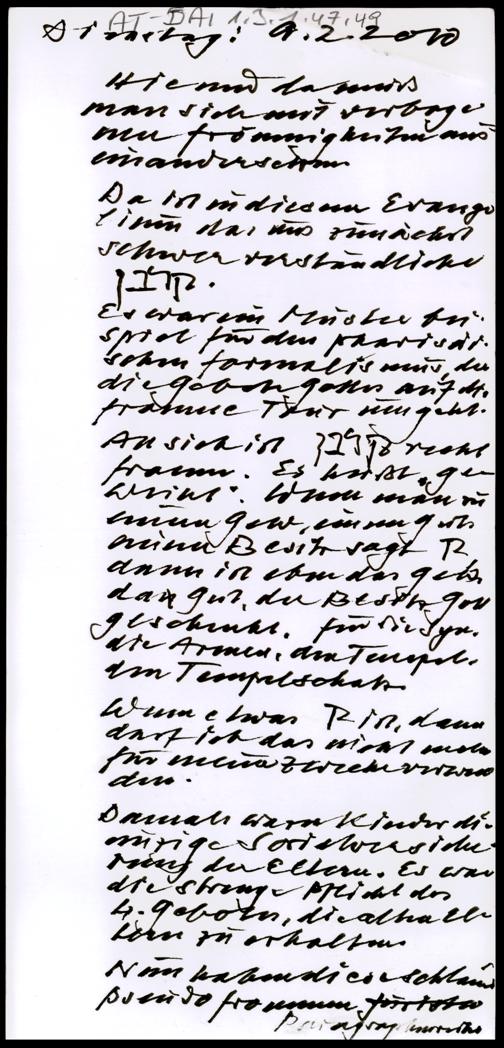 AT-DAI 1.3.1.47.49
Dienstag: 9.2.2010
Hie und da muß
man sich mit verboge
nen Frömmigkeiten aus
einandersetzen
Da ist in diesem Evange
lium das uns zunächst
schwer verständliche
קרבן.
Es war ein Muster bei-
spiel für den pharisäi-
schen Formalismus, der
die Gebote Gottes auf die
fromme Tour umgeht.
An sich ist קרבן recht
fromm. Es heißt "ge-
weiht". Wenn man zu
einem Geld, einem Gut
einem Besitz sagt
dann ist eben das Geld
das Gut, der Besitz Gott
geschenkt. für die Syn.
die Armen, den Tempel.
den Tempelschatz
Wenn etwas ist, dann
darf ich das nicht mehr
für meine Zwecke verwen
den.
Damals waren Kinder die
einzige Sozialversiche-
rung der Eltern. Es war
die strenge Pflicht des
4. Gebotes, die alten El-
tern zu erhalten
Nun haben diese schlauen
pseudofrommen Juristen